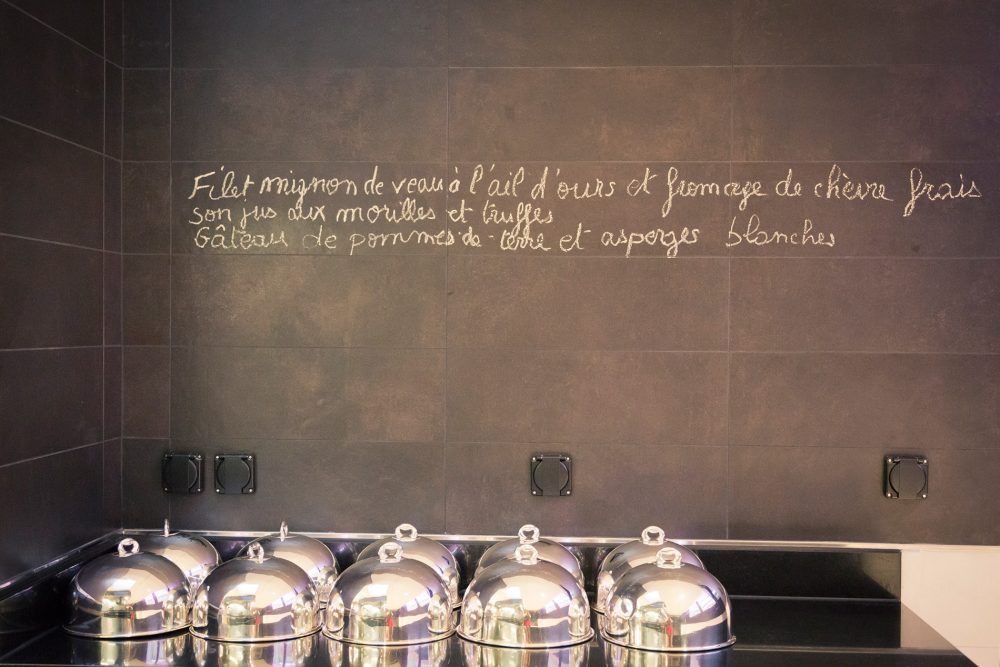 Filet mignon de veau à l'ail d'ours et fromage de chèvre frais
Son jus aux morilles et truffes
Gâteau de pommes-de-terre et asperges blanches